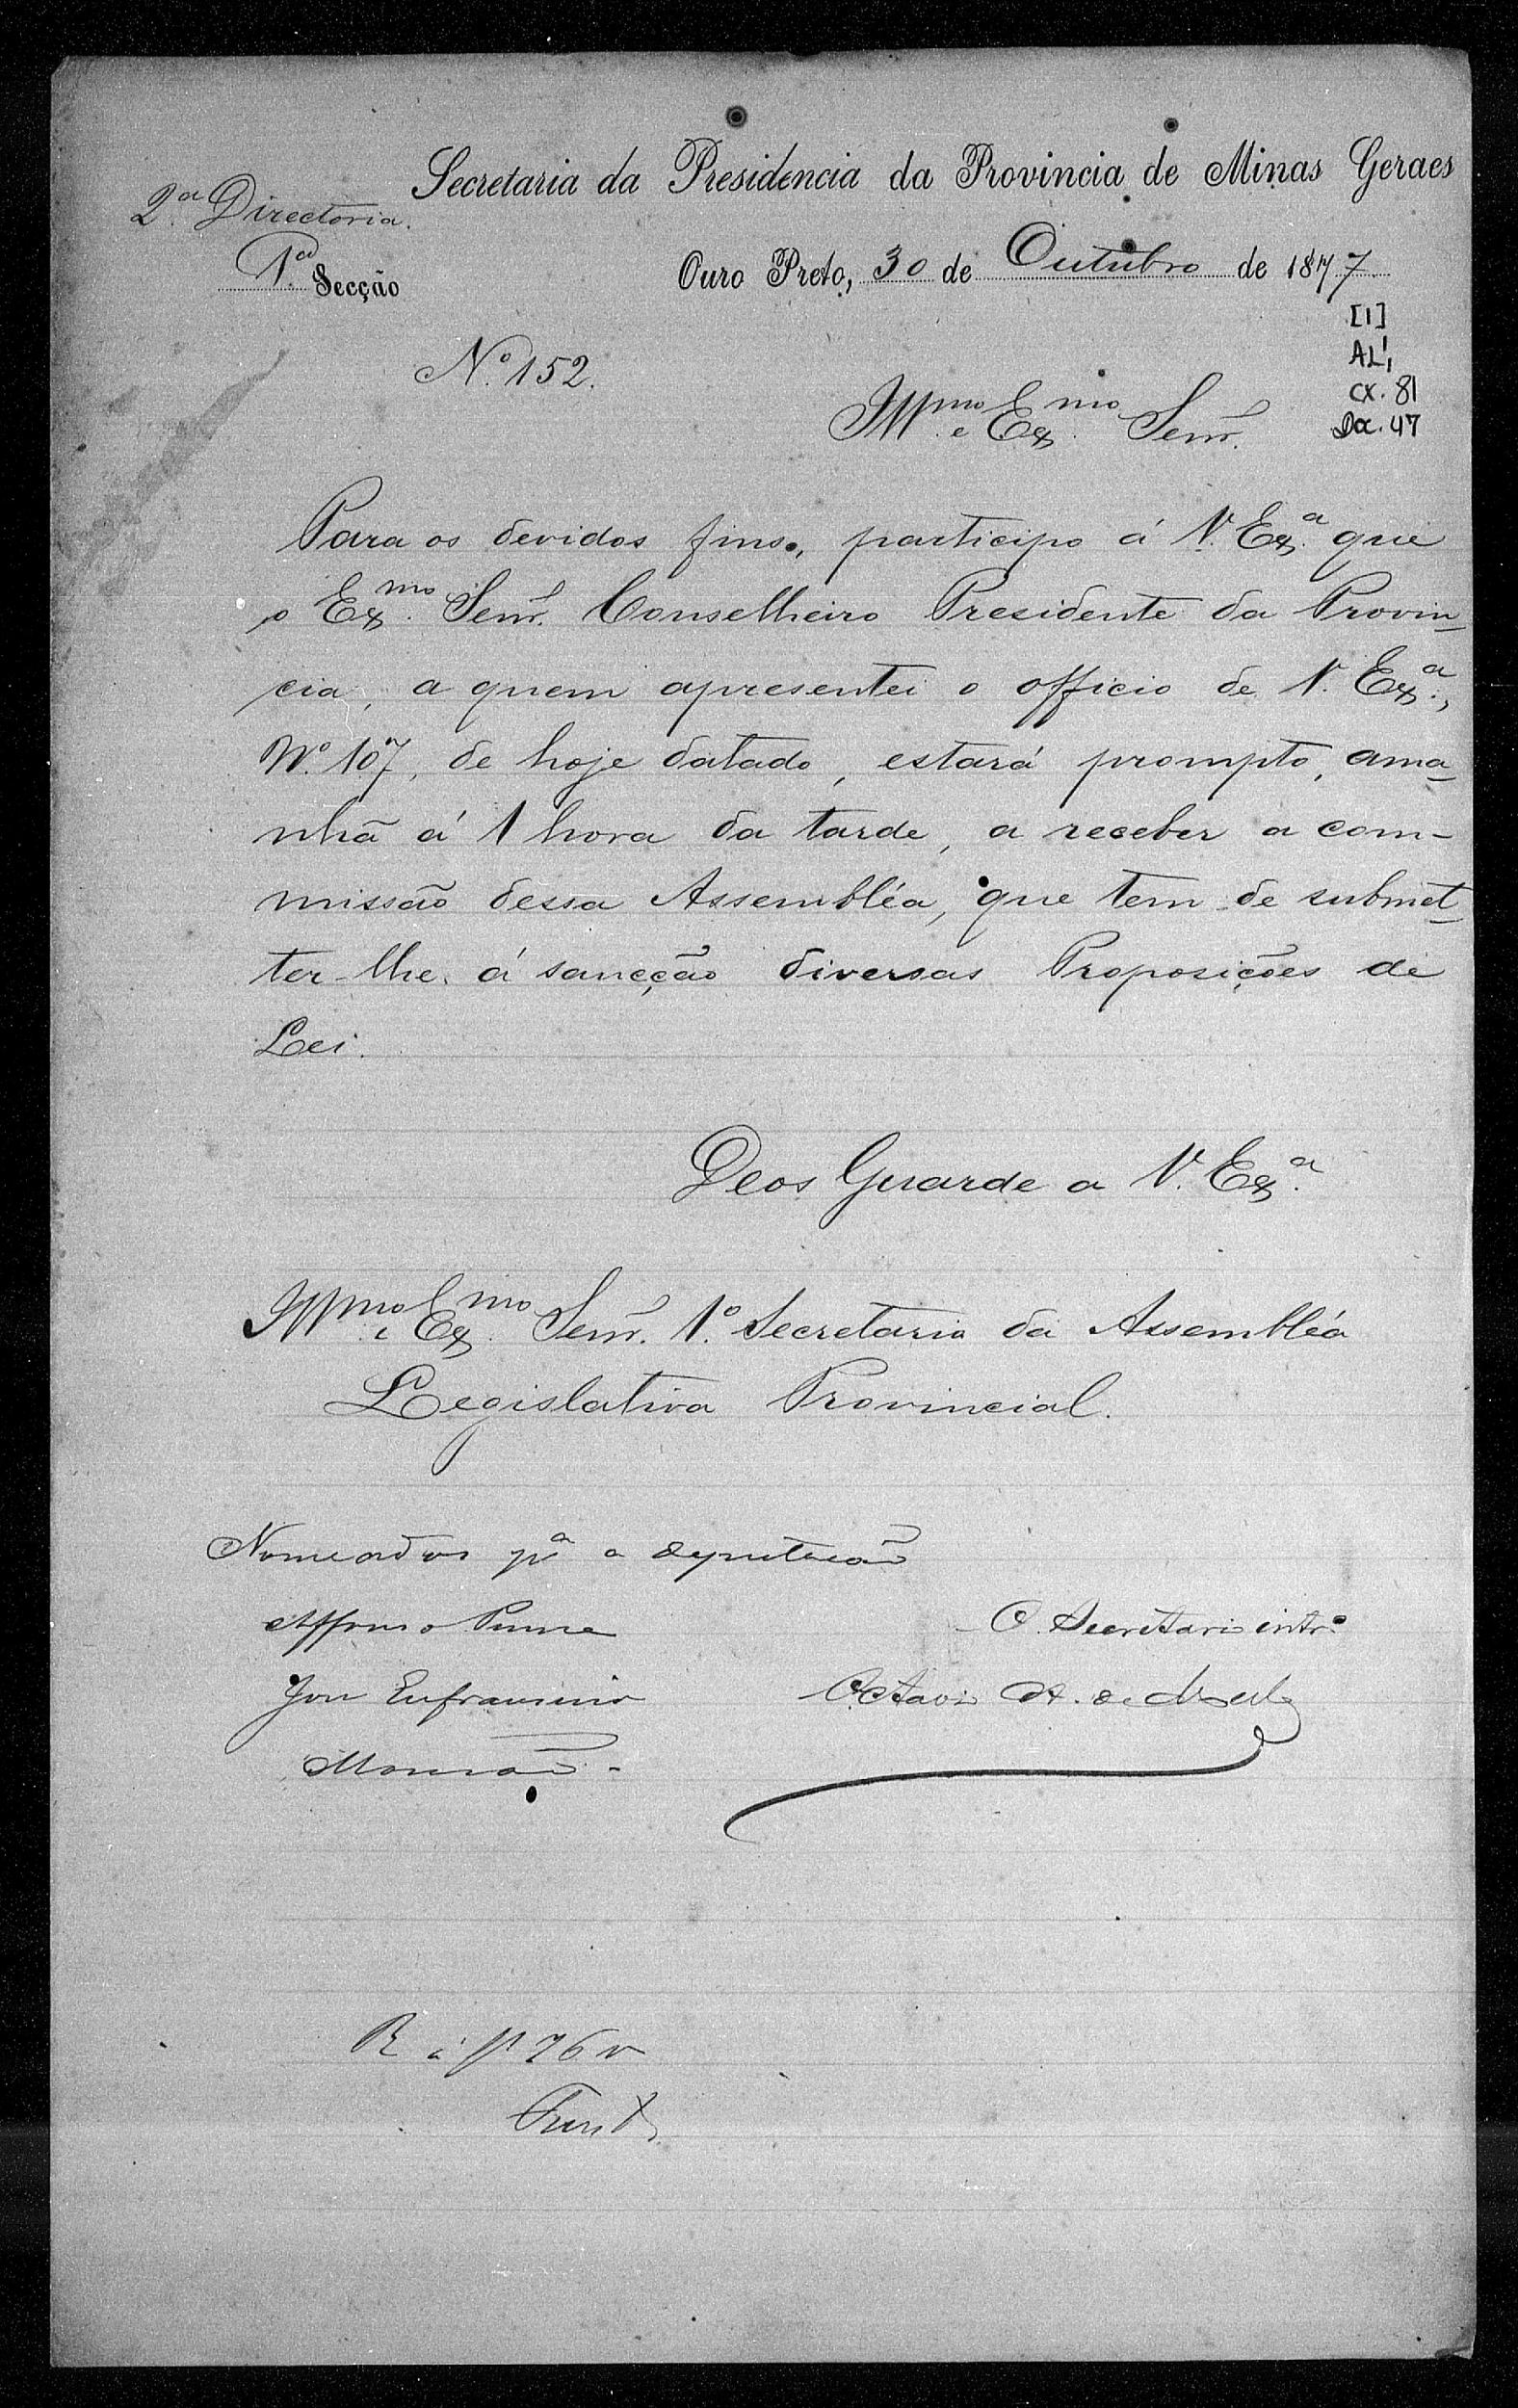 Secretaria da Presidencia da Provincia de Minas Geraes
2.ª Directoria.
1.ª Secção
Ouro Preto, 30 de Outubro de 1877.
[1]
AL1,
cx. 81
Dc. 47
N.º 152.
Ill.mo e Ex.mo Senr.
Para os devidos fins, participo á V. Ex.ª que
o Ex.mo Senr. Conselheiro Presidente da Provin-
cia, a quem apresentei o officio de V. Ex.ª,
N.º 107, de hoje datado, estará prompto, ama-
nhã á 1 hora da tarde, a receber a com-
missão dessa Assembléa, que tem de submet-
ter-lhe á sancção diversas Proposições de
Lei.
Deos Guarde a V. Ex.ª
Ill.mo e Ex.mo Senr. 1.º Secretario da Assembléa
Legislativa Provincial.
Nomeados pª a deputacão
Affonso Penna
O Secretario intrº
José Eufrausino
Octavio A. de
R á f 76 v